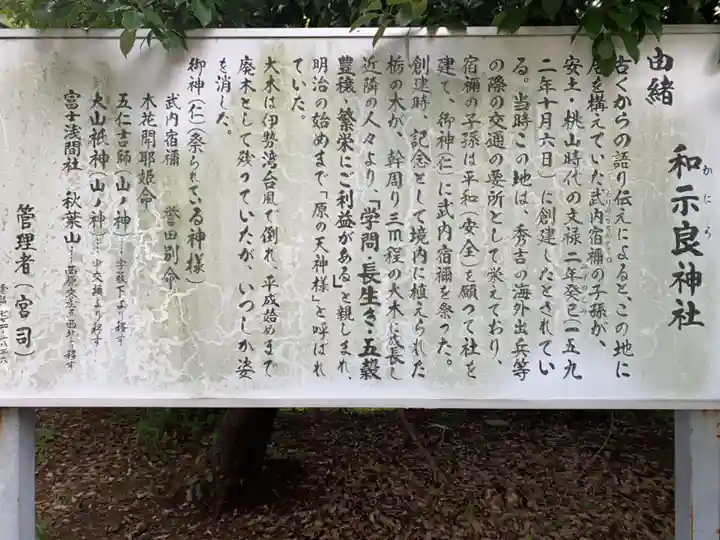 和示良神社
かにら
由緒
古くからの語り伝えによると、この地に
居を構えていた武内宿禰の子孫が、
安土・桃山時代の文禄二年癸巳(一五九
二年十月六日)に創建したとされてい
る。当時この地は、秀吉の海外出兵等
の際の交通の要所として栄えており、
宿禰の子孫は平和(安全)を願って社を
建て、御神(仁)に武内宿禰を祭った。
創建時、記念として境内に植えられた
栃の木が、幹周り三m程の大木に成長し
近隣の人々より、「学問・長生き・五穀
豊穣・繁栄にご利益がある」と親しまれ、
明治の始めまで「原の天神様」と呼ばれ
ていた。
大木は伊勢湾台風で倒れ、平成始めまで
廃木として残っていたが、いつしか姿
を消した。
御神(仁)(祭られている神様)
武内宿禰 誉田別命
木花開耶姫命
五仁吉師(山ノ神)……字殿下より移す
大山祇神(山ノ神)……中交換より移す
富士浅間社 秋葉山……西原公会堂西より移す
管理者(宮司)